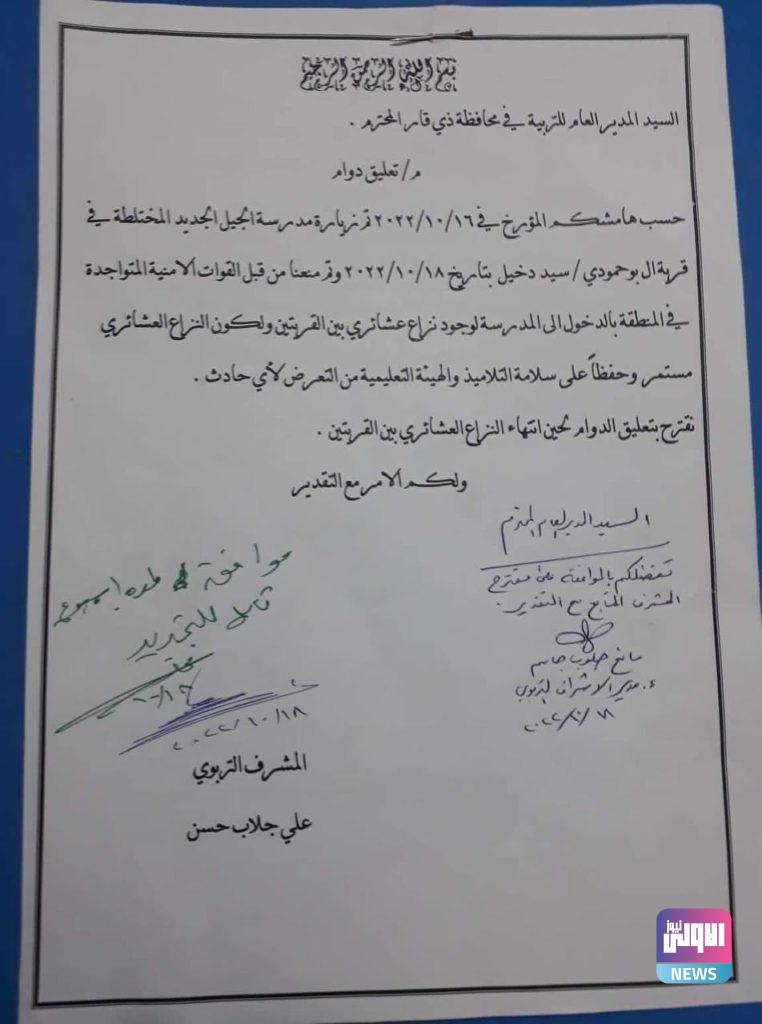 بسم الله الرحمن الرحيم
السيد المدير العام للتربية في محافظة ذي قار المحترم .
م/ تعليق دوام
حسب هامشكم المؤرخ في ٢٠٢٢/١٠/١٦ تم زيارة مدرسة الجيل الجديد المختلطة في
قرية ال بوحمودي / سيد دخيل بتاريخ ٢٠٢٢/١٠/١٨ وتم منعنا من قبل القوات الامنية المتواجدة
في المنطقة بالدخول الى المدرسة لوجود نزاع عشائري بين القريتين ولكون النزاع العشائري
مستمر وحفظاً على سلامة التلاميذ والهيئة التعليمية من التعرض لأي حادث .
نقترح بتعليق الدوام لحين انتهاء النزاع العشائري بين القريتين .
ولكم الامر مع التقدير
السيد المدير العام المحترم
تفضلكم بالموافقة على مقترح
المشرف المتابع مع التقدير .
مانع جاسم
ع. مدير الاشراف التربوي
٢٠٢٢/١٠/١٨
موافق لمدة اسبوع
قابل للتمديد
١٠/١٨
٢٠٢٢/١٠/١٨
المشرف التربوي
علي جلاب حسن
الاولى نيوز
NEWS